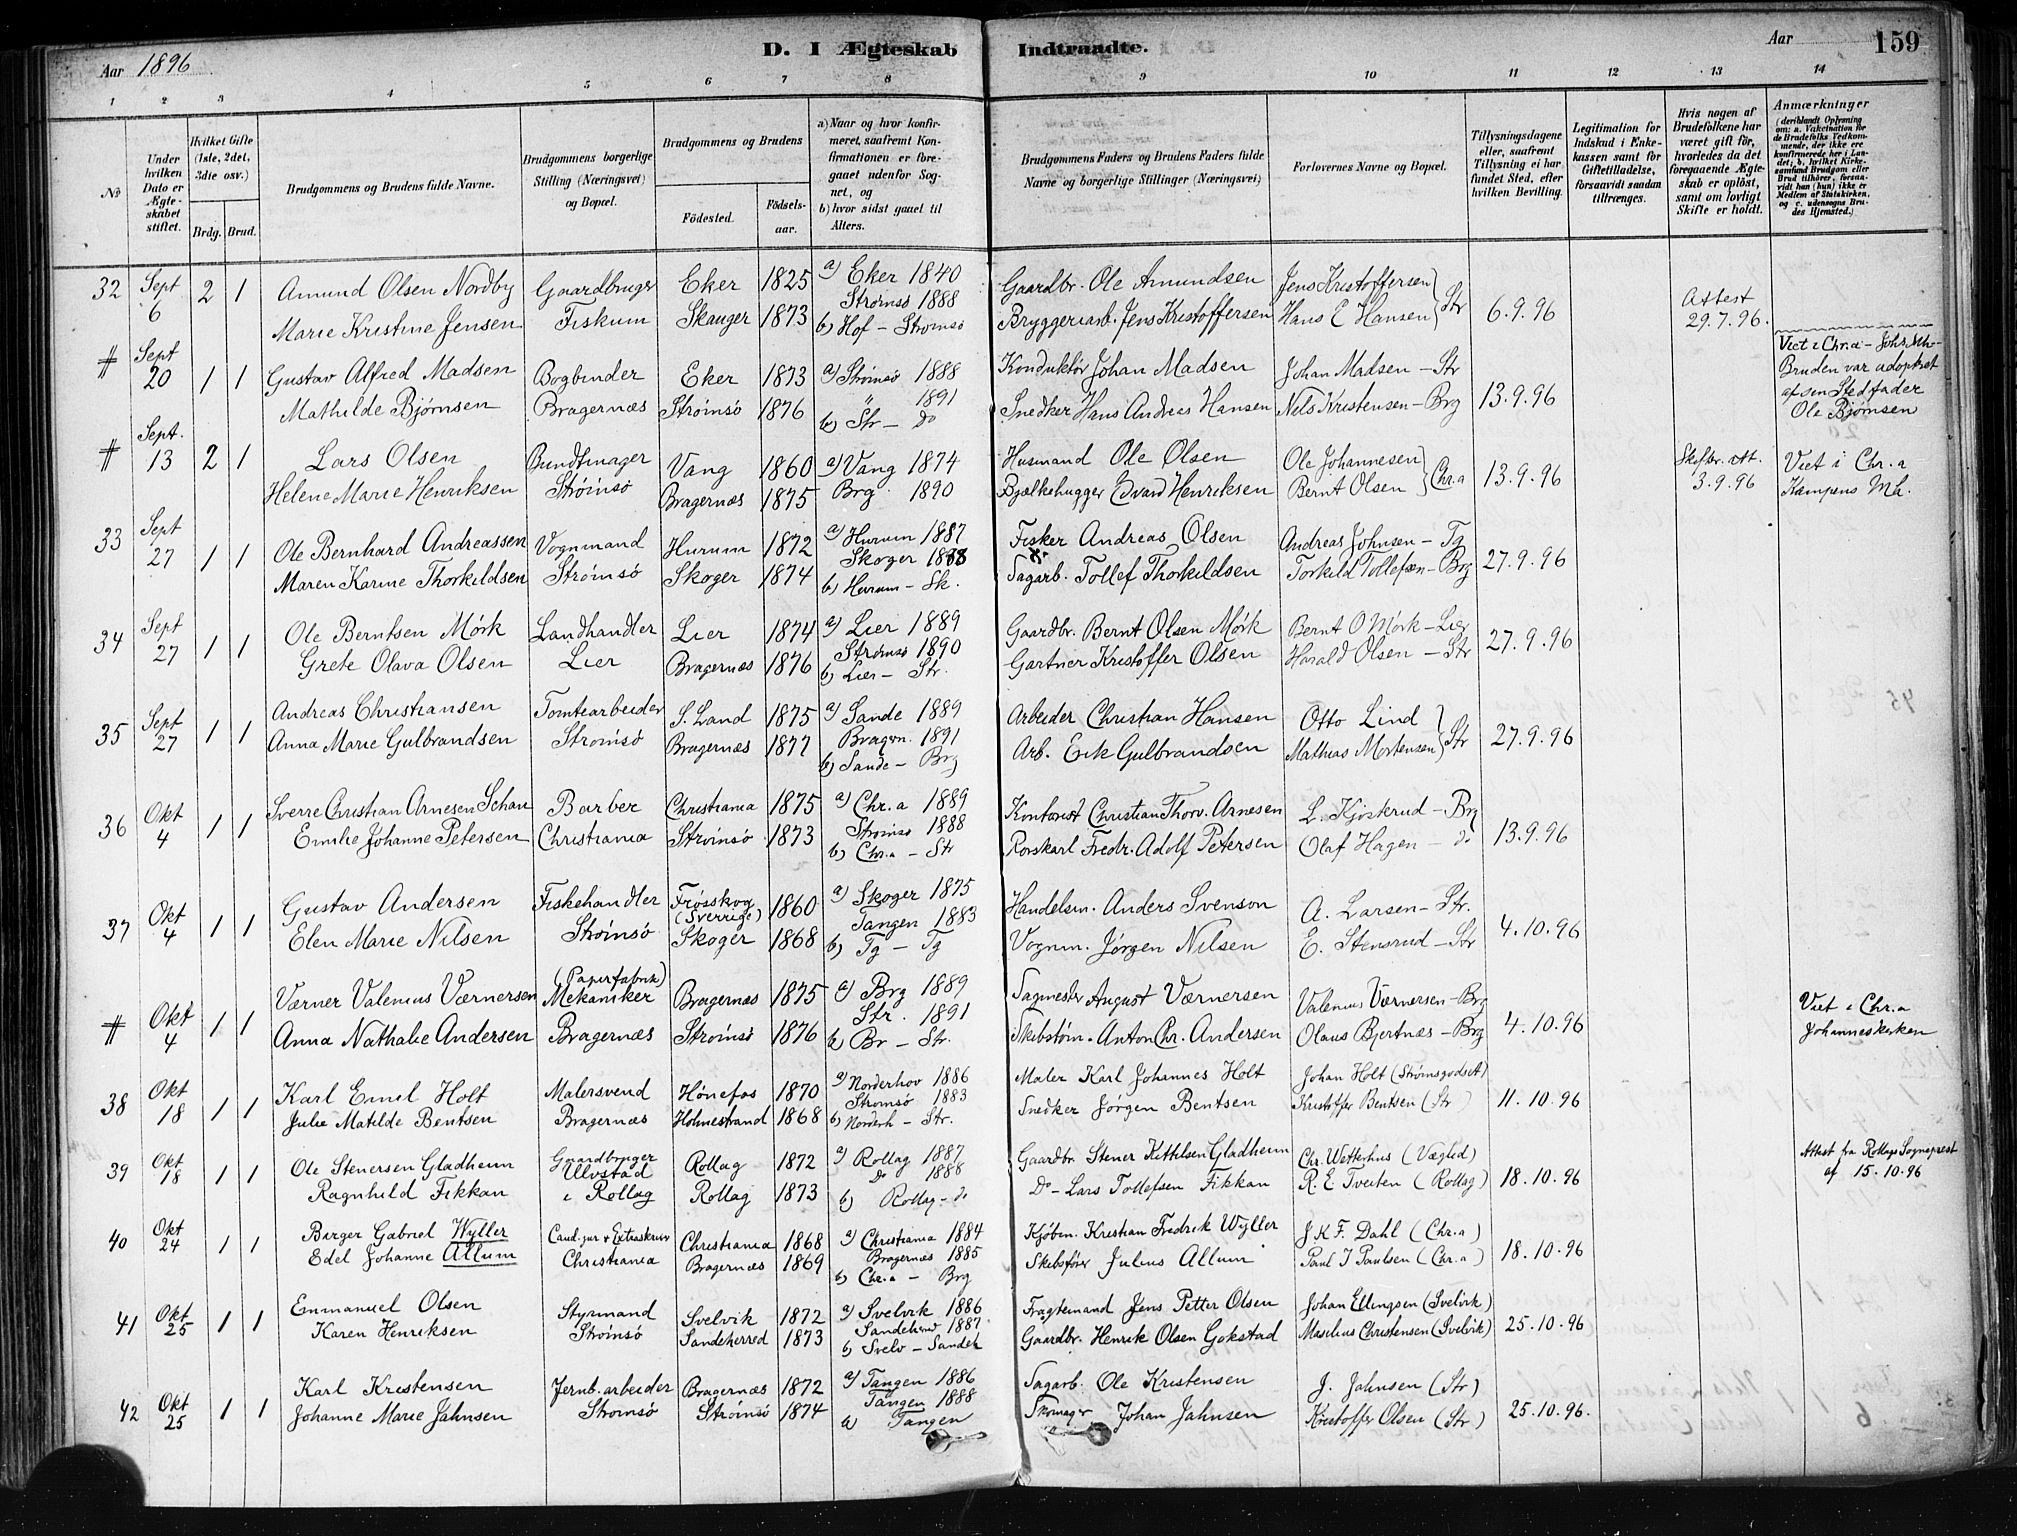 Aar 1896
D. I Ægteskab Indtraadte.
Aar
159
1 2 3 4 5 6 7 8 9 10 11 12 13 14
No
Under hvilken Dato er Ægteskabet stiftet.
Hvilket Gifte (1ste, 2det, 3die osv.)
Brdg. Brud.
Brudgommens og Brudens fulde Navne.
Brudgommens borgerlige Stilling (Næringsvei) og Bopæl.
Brudgommens og Brudens
Födested. Födselsaar.
a) Naar og hvor konfirmeret, saafremt Konfirmationen er foregaaet udenfor Sognet, og
b) hvor sidst gaaet til Alters.
Brudgommens Faders og Brudens Faders fulde Navne og borgerlige Stillinger (Næringsvei)
Forlovernes Navne og Bopæl.
Tillysningsdagene eller, saafremt Tillysning ei har fundet Sted, efter hvilken Bevilling.
Legitimation for Indskud i Enkekassen samt for Giftetilladelse, forsaavidt saadan tiltrænges.
Hvis nogen af Brudefolkene har været gift för, hvorledes da det foregaaende Ægteskab er oplöst, samt om lovligt Skifte er holdt.
Anmærkninger (deriblandt Oplysning om: a. Vakcination for de Brudefolks Vedkommende, der ikke ere konfirmerede her i Landet; b. hvilket Kirkesamfund Brudgom eller Brud tilhörer, forsaavidt han (hun) ikke er Medlem af Statskirken, og c. udensogns Brudes Hjemsted.)
32 Sept 6 2 1 Amund Olsen Nordby Gaardbruger Eker 1825 a) Eker 1840 Gaardbr. Ole Amundsen Jens Kristoffersen } Str 6.9.96 Attest 29.7.96.
Marie Kristine Jensen Fiskum Skauger 1873 Strömsö 1888 b) Hof - Strömsö Bryggeriarb. Jens Kristoffersen Hans E Hansen
# Sept 20 1 1 Gustav Alfred Madsen Bogbinder Eker 1873 a) Strömsö 1888 Konduktör Johan Madsen Johan Madsen - Str 13.9.96 Viet i Chr.a -
Mathilde Björnsen Bragernæs Strömsö 1876 " 1891 b) Str - do Snedker Hans Andreas Hansen Nels Kristensen - Brg Bruden var adoptret af sen Stedfader Ole Bjørnsen
# Sept. 13 2 1 Lars Olsen Bundtmager Vang 1860 a) Vang 1874 Husmand Ole Olsen Ole Johannesen } Chr.a 13.9.96 Skifter. att. 3.9.96 Viet i Chr.a
Helene Marie Henriksen Strömsö Bragernæs 1875 Brg. 1890 Bjælkehugger Edvard Henriksen Bernt Olsen Kampens Mh.
33 Sept 27 1 1 Ole Bernhard Andreassen Vognmand Hurum 1872 a) Hurum 1887 Fisker Andreas Olsen Andreas Johnsen - Tg 27.9.96
Maren Karine Thorkildsen Strömsö Skoger 1874 Skoger 1888 b) Hurum - Sk. Sagarb. Tollef Thorkildsen Torkild Tollefsen - Brg
34 Sept 27 1 1 Ole Berntsen Mörk Landhandler Lier 1874 a) Lier 1889 Gaardbr. Bernt Olsen Mörk Bernt O Mörk - Lier 27.9.96
Grete Olava Olsen Lier Bragernæs 1876 Strömsö 1890 b) Lier - Str. Gartner Kristoffer Olsen Harald Olsen - Str
35 Sept 27 1 1 Andreas Christiansen Tomtearbeider S. Land 1875 a) Sande 1889 Arbeider Christian Hansen Otto Lind } Str 27.9.96
Anna Marie Gulbrandsen Strömsö Bragernæs 1877 Bragern. 1891 b) Sande - Brg Arb. Erik Gulbrandsen Mathias Mortensen
36 Okt 4 1 1 Sverre Christian Arnesen Schau Barber Christiania 1875 a) Chr.a 1889 Kontorist Christian Thorv. Arnesen L. Kjösterud - Brg 13.9.96
Emilie Johanne Petersen Christiania Strömsö 1873 Strömsö 1888 b) Chr.a - Str Rorskarl Fredr. Adolf Petersen Olaf Hagen - do
37 Okt 4 1 1 Gustav Andersen Fiskehandler Frösskog (Sverrige) 1860 a) Skoger 1875 Handelsm. Anders Svenson A. Larsen - Str. 4.10.96
Elen Marie Nilsen Strömsö Skoger 1868 Tangen 1883 b) Tg - Tg Vognm. Jörgen Nilsen E. Stensrud - Str
# Okt 4 1 1 Værner Valenius Værnersen (Papirfabrik) Mekaniker Bragernæs 1875 a) Brg 1889 Sagmester August Værnersen Valenius Værnersen - Brg 4.10.96 Viet i Chr.a
Anna Nathalie Andersen Bragernæs Strömsö 1876 Str. 1891 b) Br - Str. Skibstöm. Anton Chr. Andersen Olaus Bjertnæs - Brg Johanneskirken
38 Okt 18 1 1 Karl Emil Holt Malersvend Hönefos 1870 a) Norderhov 1886 Maler Karl Johannes Holt Johan Holt (Strömsgodset) 11.10.96
Julie Matilde Bentsen Bragernæs Holmestrand 1868 Strömsö 1883 b) Norderh - Str. Snedker Jörgen Bentsen Kristoffer Bentsen (Str)
39 Okt 18 1 1 Ole Stenersen Gladheim Gaardbruger Ulvstad Rollag 1872 a) Rollag 1887 Gaardbr Stener Kittilsen Gladheim Chr. Wetterhus (Væglid) 18.10.96 Attest fra Rollags Sogneprest
Ragnhild Fikkan i Rollag Rollag 1873 Do 1888 b) Rollag - do Do - Lars Tollefsen Fikkan R. E Tveiten (Rollag) af 15.10.96
40 Okt 24 1 1 Birger Gabriel Wyller Cand. jur & Extraskriver Christiania 1868 a) Christiania 1884 Kjöbm. Kristian Fredrik Wyller J. K F. Dahl (Chr.a) 18.10.96
Edel Johanne Allum Christiania Bragernæs 1869 Bragernæs 1885 b) Chr.a - Brg Skibsförer Julius Allum Paul J Paulsen (Chr.a)
41 Okt 25 1 1 Emmanuel Olsen Styrmand Svelvik 1872 a) Svelvik 1886 Fragtemand Jens Petter Olsen Johan Ellingsen (Svelvik) 25.10.96
Karen Henriksen Strömsö Sandeherred 1873 Sandeherred 1887 b) Svelv - Sandeh Gaardbr. Henrik Olsen Gokstad Maselius Christensen (Svelvik)
42 Okt 25 1 1 Karl Kristensen Jernb. arbeider Bragernæs 1872 a) Tangen 1886 Sagarb. Ole Kristensen J. Jahnsen (Str) 25.10.96.
Johanne Marie Jahnsen Strömsö Strömsö 1874 Tangen 1888 b) Tangen Skomager Johan Jahnsen Kristoffer Olsen (Str)